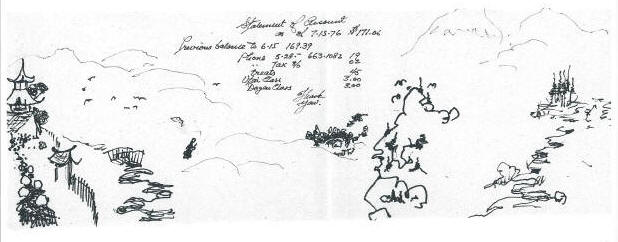 Statement of Account
7-13-76 $171.06
Previous balance to 6-15 169.39
Phone 5-28- 663-1082 19
Tax % 02
Class 3.00
Class 3.00
Thank
You.